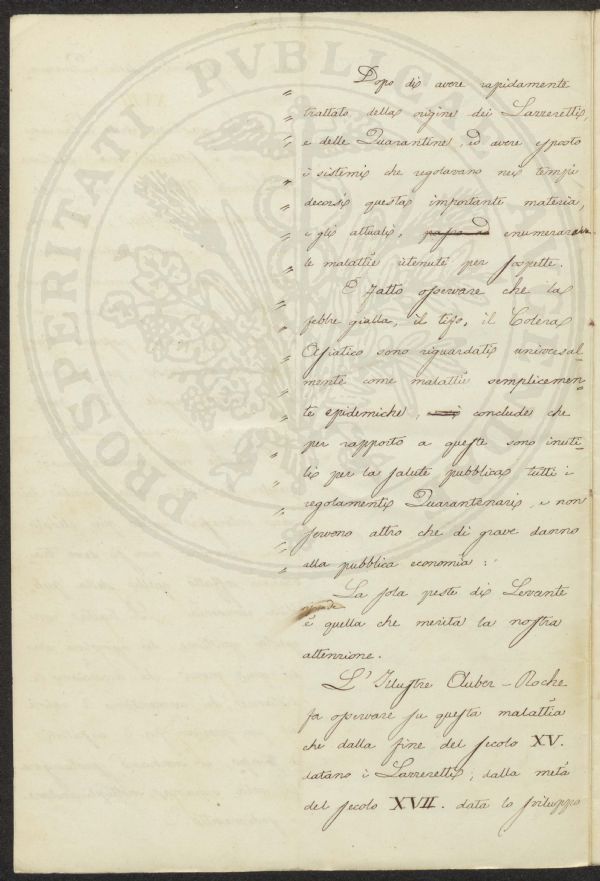 PROSPERITATI PVBLICAE
Dopo di avere rapidamente
trattato della origine dei Lazzeretti,
e delle Quarantine, ed avere esposto
i sistemi che regolavano nei tempi
decorsi questa importante materia,
e gli attuali, passo ad enumerare
le malattie ritenute per sospette.
E fatto osservare che la
febbre gialla, il tifo, il Colera
Asiatico sono riguardati universal-
mente come malattie semplicemen-
te epidemiche, conclude che
per rapporto a queste sono inuti-
li per la salute pubblica tutti i
regolamenti Quarantenari, e non
servono altro che di grave danno
alla pubblica economia:
La sola peste di Levante
è quella che merita la nostra
attenzione.
L'Illustre Auber-Roche
fa osservare su questa malattia
che dalla fine del secolo XV.
datano i Lazzeretti; dalla metà
del secolo XVII. data lo sviluppo